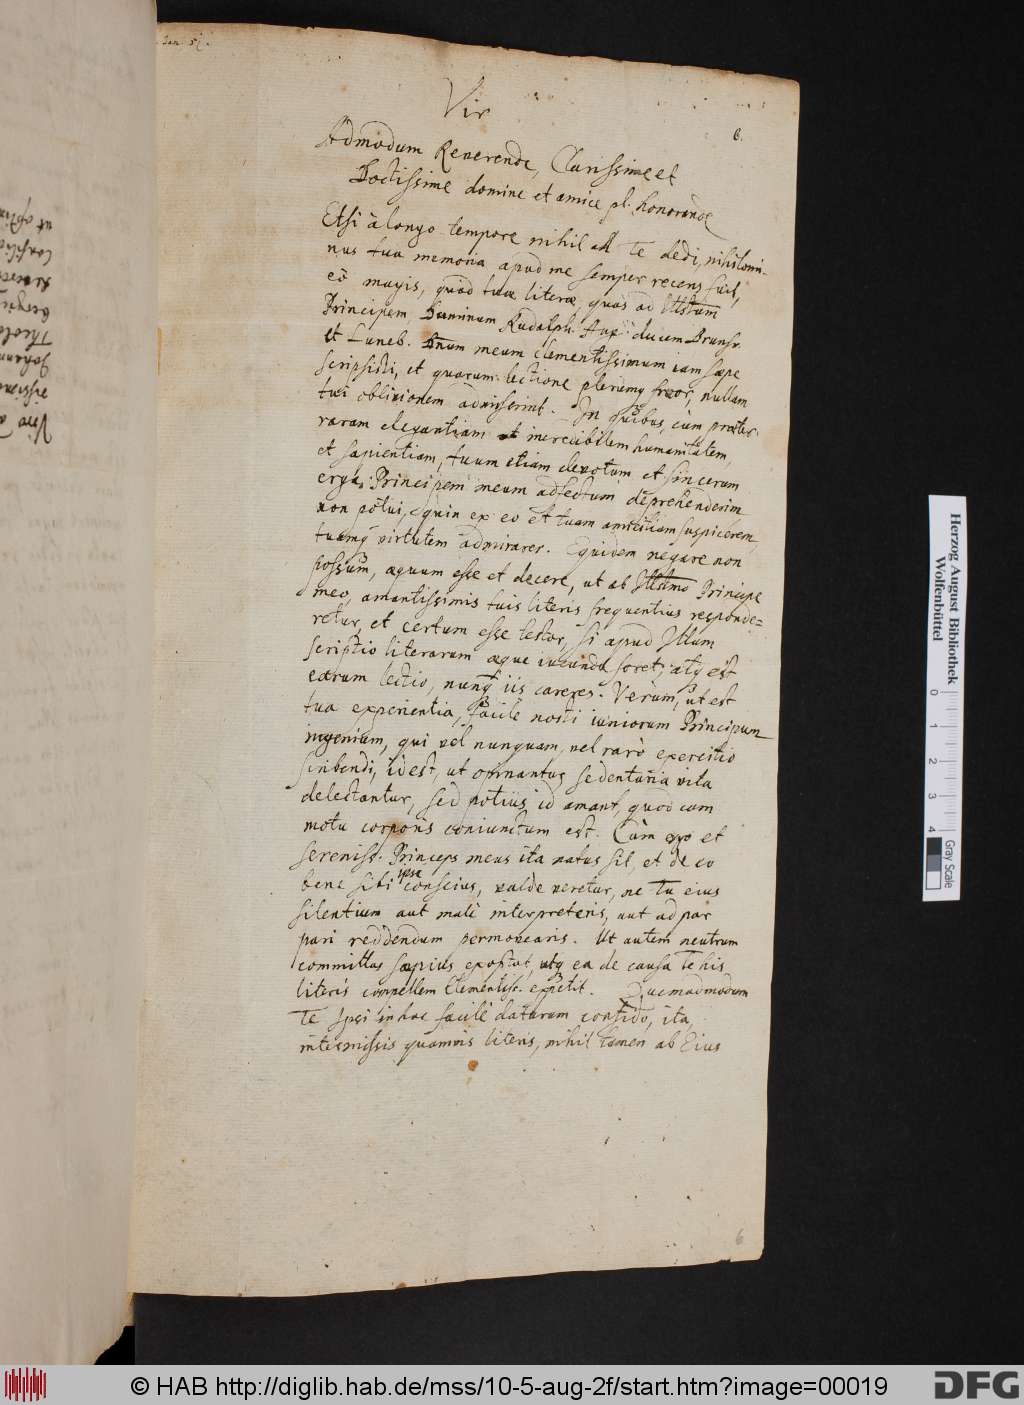 Jan. 5[.
6.
Vir
Admodum Reverende, Clarissime et
Doctissime domine et amice pl. honorande
Etsi à longo tempore nihil ad Te dedi, nihilomi-
nus tua memoria apud me semper recens fuit,
eò magis, quòd tuæ literæ, quas ad Illstum
Principem Dominum Rudolph. Aug: ducem Brunsv.
et Luneb. Dnum meum clementissimum iam sæpe
scripsisti, et quarum lectione plerumq fruor, nullam
tui oblivionem admiserint. In quibus, cùm præter
raram elegantiam et incredibilem humanitatem,
et sapientiam, tuum etiam devotum et sincerum
erga Principem meum adfectum deprehenderim
non potui, quin ex eo et tuam amicitiam suspicerem,
tuamq virtutem admirarer. Equidem negare non
possum, æquum esse et decere, ut ab Illstmo Principe
meo, amantissimis tuis literis frequentius responde=
retur, et certum esse testor, si apud Illum
scriptio literarum æque iucunda foret, atq est
earum lectio, nunq iis careres. Verùm, ut est
tua experientia, facile nosti iuniorum Principum
ingenium, qui vel nunquam, vel rarò exercitio
scribendi, id est, ut opinantur, sedentaria vita
delectantur, sed potiùs id amant, quod cum
motu corporis coniunctum est. Cùm ergo et
sereniss. Princeps meus ita natus sit, et de eo
bene sibi ipse conscius, valde veretur, ne Tu eius
silentium aut malè interpreteris, aut ad par
pari reddendum permovearis. Ut autem neutrum
committas sæpius exoptat, atq ea de causa Te his
literis compellem Clementiss. expetit. Quemadmodum
Te Ipsi in hac facilè daturum confido, ita,
intermissis quamvis literis, nihil tamen ab Eius
6
Herzog August Bibliothek
Wolfenbüttel
0 1 2 3 4
Gray Scale
© HAB http://diglib.hab.de/mss/10-5-aug-2f/start.htm?image=00019
DFG